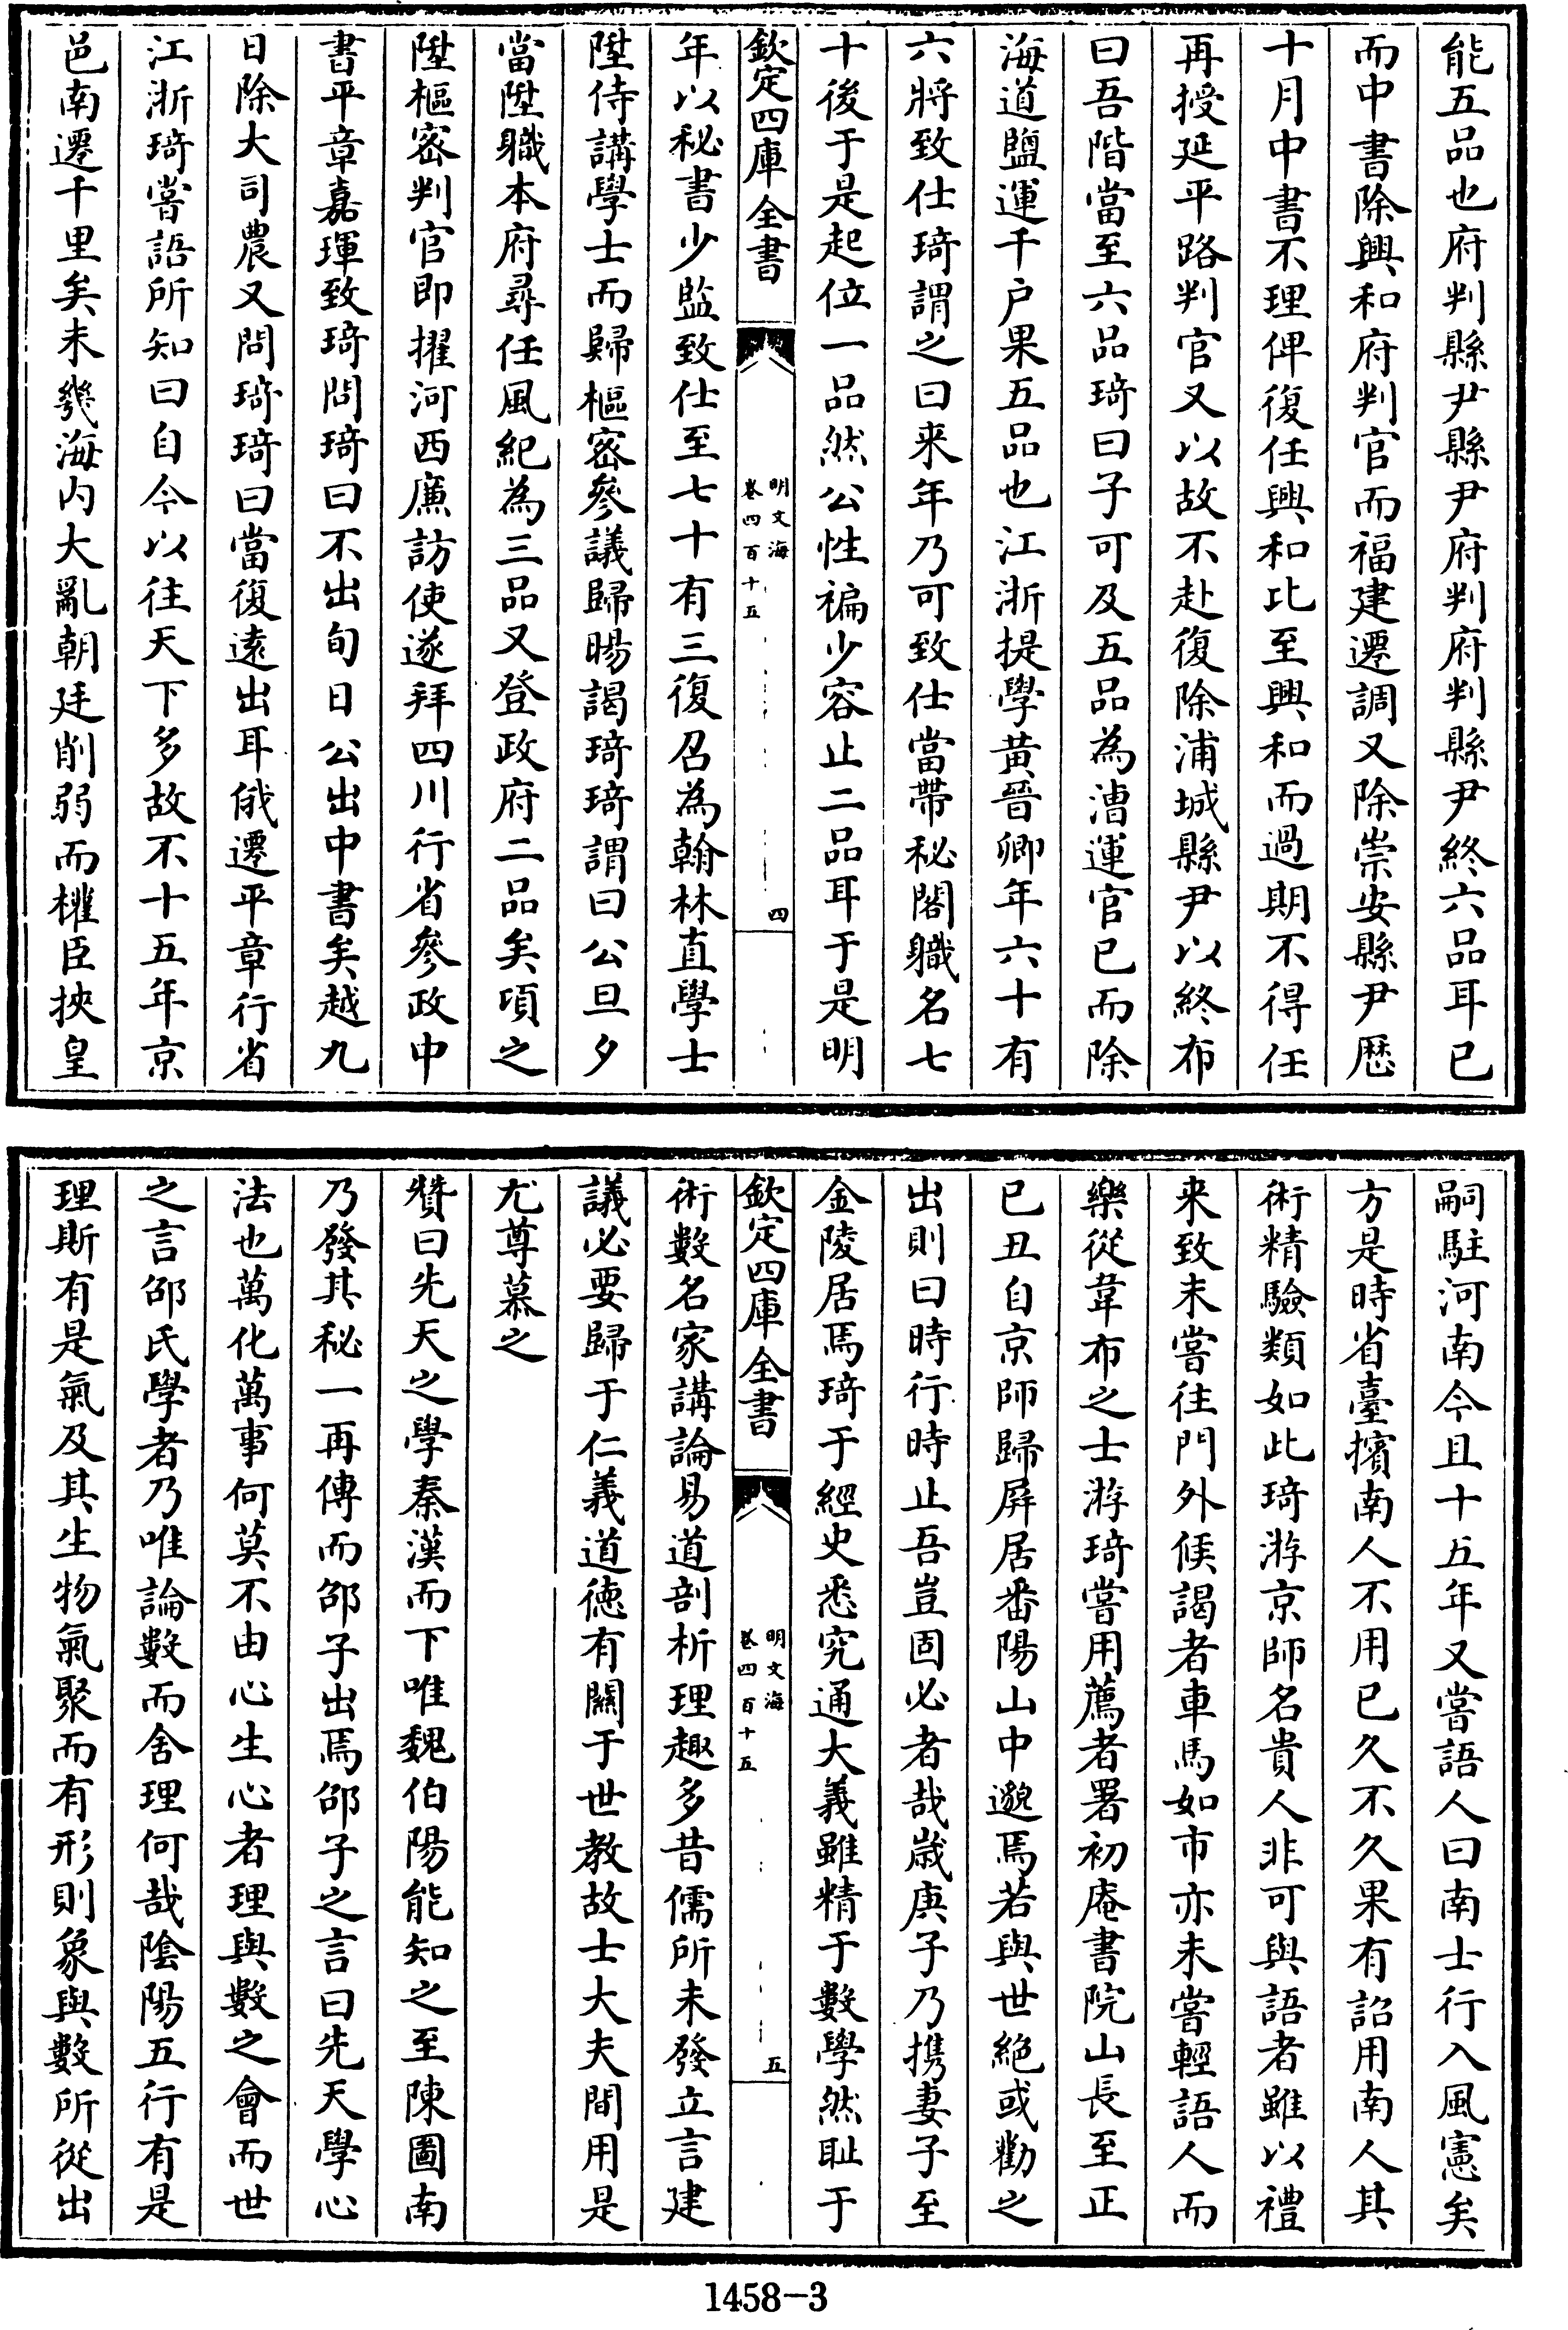 能五品也府判縣尹縣尹府判府判縣尹終六品耳已
而中書除興和府判官而福建遷調又除崇安縣尹歷
十月中書不理俾復任興和比至興和而過期不得任
再授延平路判官又以故不赴復除浦城縣尹以終布
曰吾階當至六品琦曰子可及五品為漕運官已而除
海道鹽運千戶果五品也江浙提學黃晉卿年六十有
六將致仕琦謂之曰来年乃可致仕當帶秘閣職名七
十後于是起位一品然公性褊少容止二品耳于是明
欽定四庫全書
明文海
卷四百十五
四
年以秘書少監致仕至七十有三復召為翰林直學士
陞侍講學士而歸樞密參議歸暘謁琦琦謂曰公旦夕
當陞職本府尋任風紀為三品又登政府二品矣項之
陞樞密判官即擢河西廉訪使遂拜四川行省參政中
書平章嘉琿致琦問琦曰不出旬日公出中書矣越九
日除大司農又問琦琦曰當復遠出耳俄遷平章行省
江浙琦嘗語所知曰自今以往天下多故不十五年京
邑南遷千里矣未幾海内大亂朝廷削弱而權臣挾皇
嗣駐河南今且十五年又嘗語人曰南士行入風憲矣
方是時省臺擯南人不用已久不久果有詔用南人其
術精驗類如此琦游京師名貴人非可與語者雖以禮
来致未嘗往門外候謁者車馬如市亦未嘗輕語人而
樂從韋布之士游琦嘗用薦者署初庵書院山長至正
已丑自京師歸屏居番陽山中邈焉若與世絶或勸之
出則曰時行時止吾豈固必者哉歲庚子乃携妻子至
金陵居焉琦于經史悉究通大義雖精于數學然恥于
欽定四庫全書
明文海
卷四百十五
五
術數名家講論易道剖析理趣多昔儒所未發立言建
議必要歸于仁義道徳有關于世教故士大夫間用是
尤尊慕之
贊曰先天之學秦漢而下唯魏伯陽能知之至陳圖南
乃發其秘一再傳而邵子出焉邵子之言曰先天學心
法也萬化萬事何莫不由心生心者理與數之會而世
之言邵氏學者乃唯論數而舍理何哉陰陽五行有是
理斯有是氣及其生物氣聚而有形則象與數所從出
1458-3